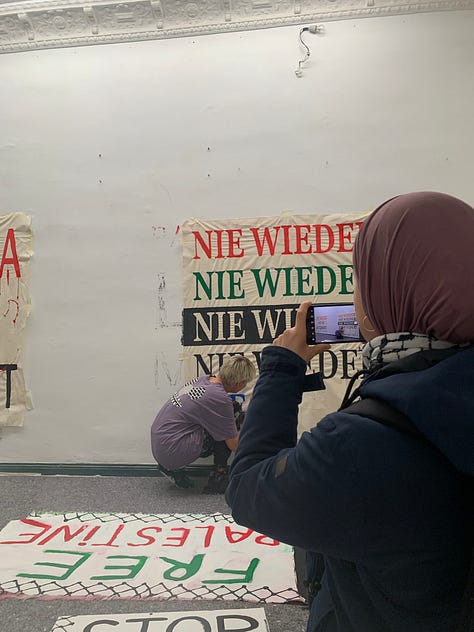 A
T
NIE WIEDE
NIE WIEDE
NIE WI
NIE
FREE
PALESTiNE
STOP